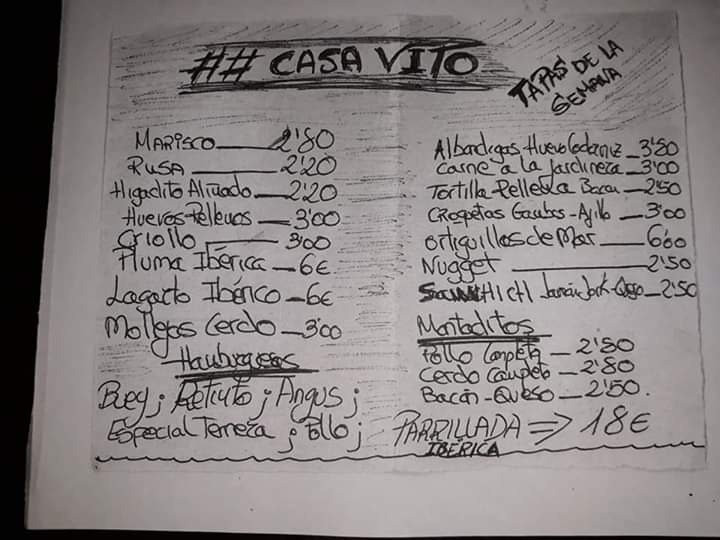 ## CASA VITO
TAPAS DE LA
SEMANA
MARISCO 2'80
RUSA 2'20
Higadito Aliñado 2'20
Huevos Rellenos 3'00
Criollo 3'00
Pluma Ibérica 6€
Lagarto Ibérico 6€
Mollejas Cerdo 3'00
Hamburguesas
Buey; Retinto; Angus;
Especial Ternera; Pollo;
Albondigas Huevo Codorniz 3'50
Carne a la Jardinera 3'00
Tortilla Rellena Bacon 2'50
Croquetas Gambas-Ajillo 3'00
Ortiguillas de Mar 6'00
Nugget 2'50
SANWHICH Jamón York-Queso 2'50
Montaditos
Pollo Completo 2'80
Cerdo Completo 2'80
Bacón-Queso 2'50.
PARRILLADA => 18€
IBÉRICA